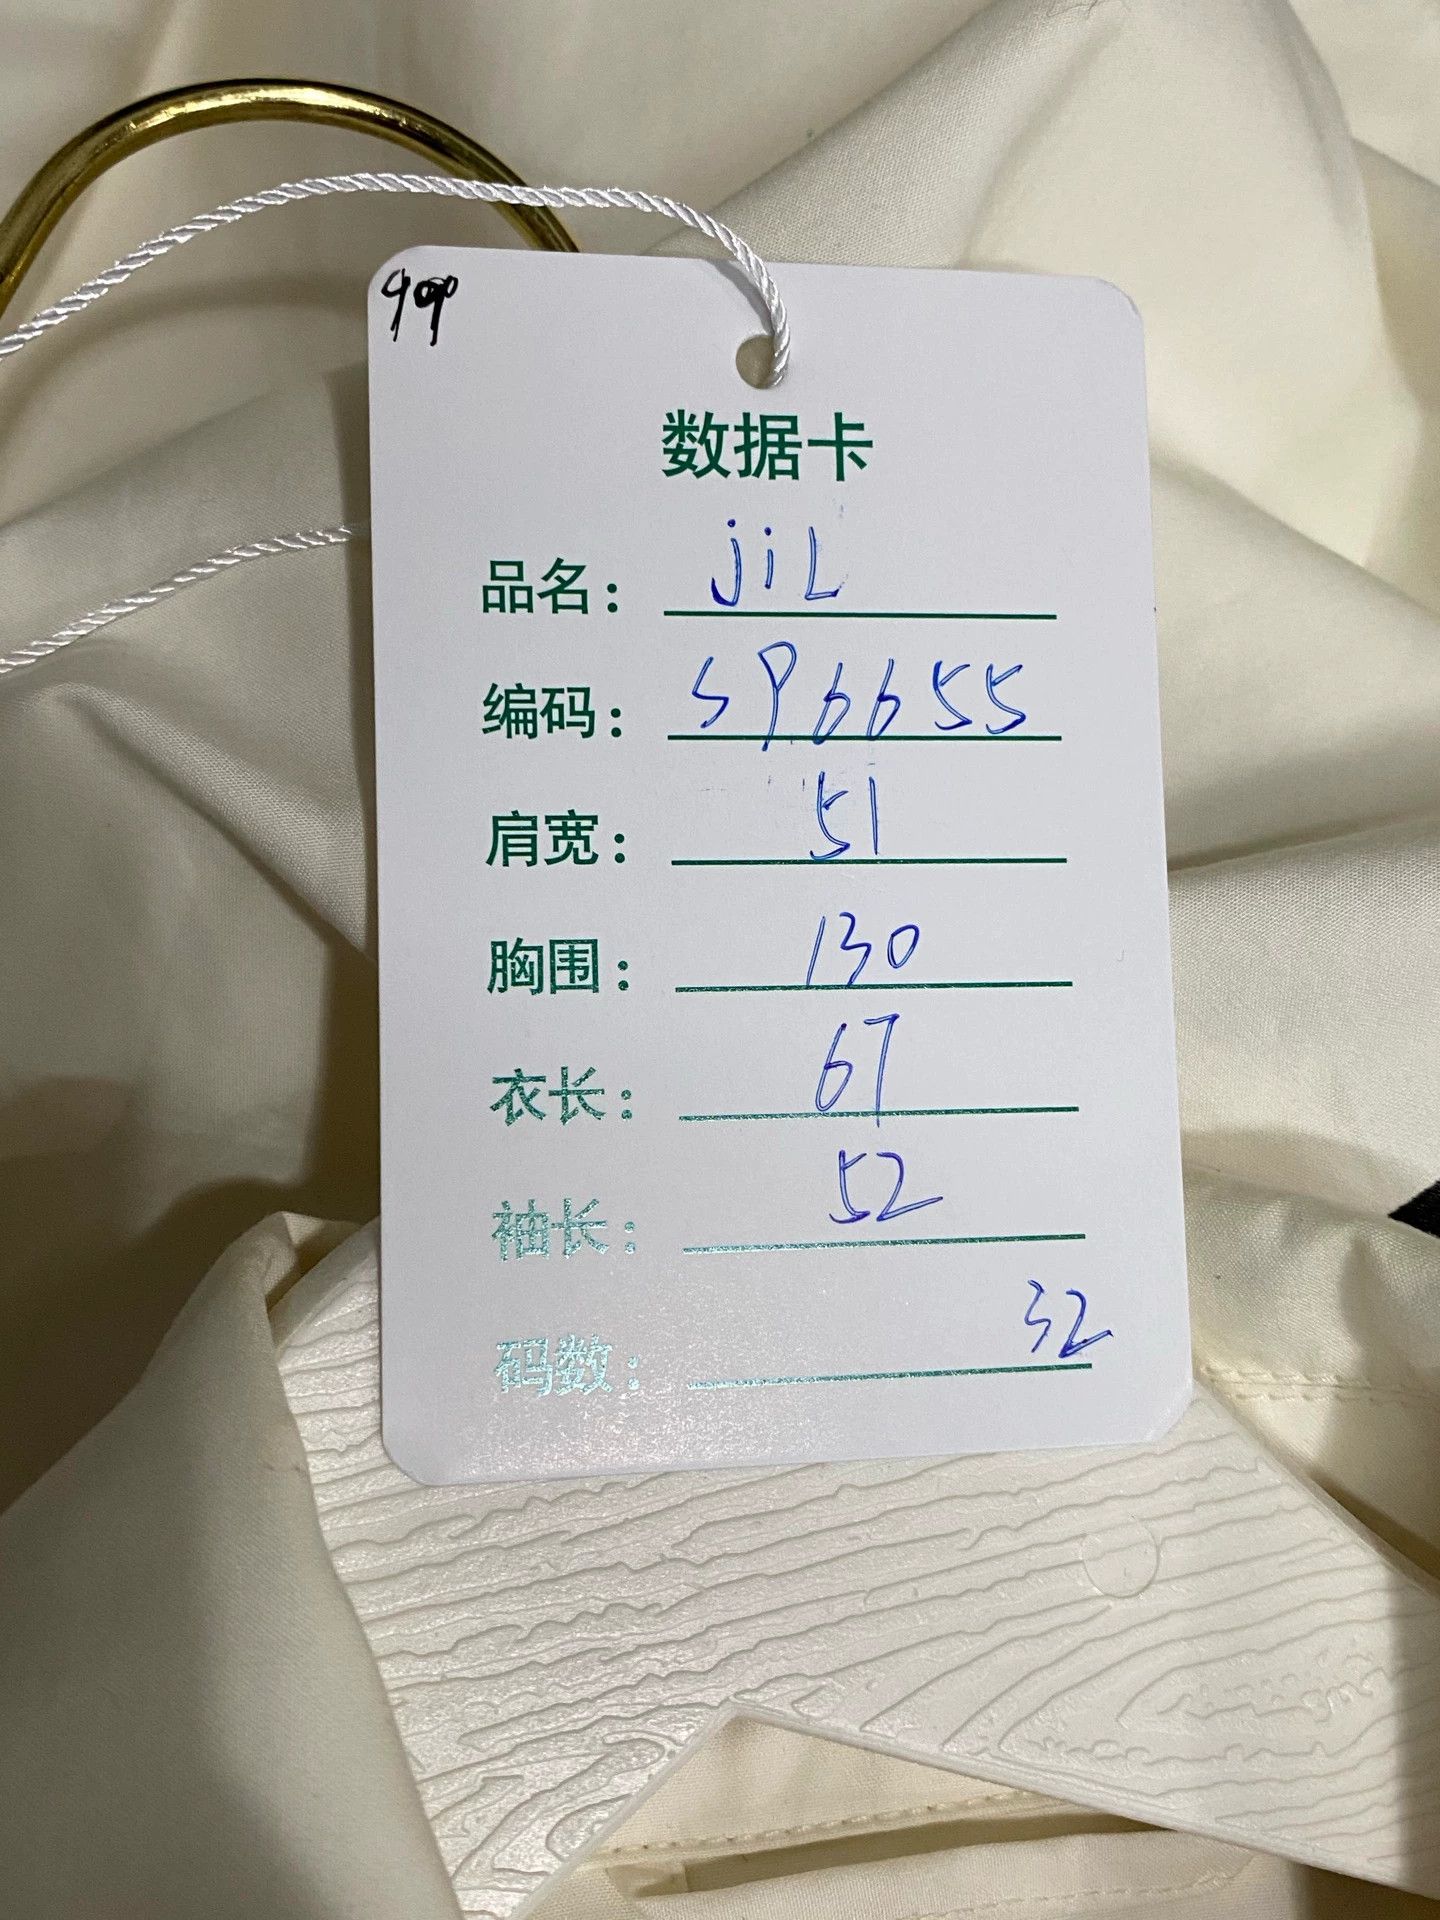 数据卡
品名： jiL
编码： SP6655
肩宽： 51
胸围： 130
衣长： 67
袖长： 52
码数： 32